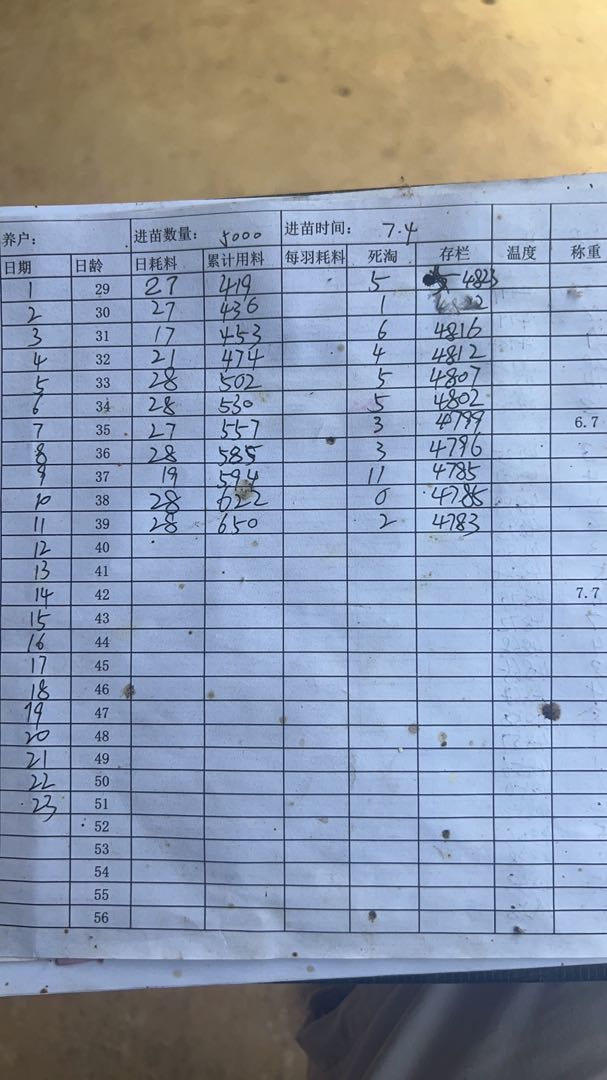 养户： 进苗数量： 5000 进苗时间： 7.4
日期 日龄 日耗料 累计用料 每羽耗料 死淘 存栏 温度 称重
1 29 27 419 5 4823
2 30 27 436 1
3 31 17 453 6 4816
4 32 21 474 4 4812
5 33 28 502 5 4807
6 34 28 530 5 4802
7 35 27 557 3 4799 6.7
8 36 28 585 3 4796
9 37 19 594 11 4785
10 38 28 622 0 4785
11 39 28 650 2 4783
12 40
13 41
14 42 7.7
15 43
16 44
17 45
18 46
19 47
20 48
21 49
22 50
23 51
52
53
54
55
56